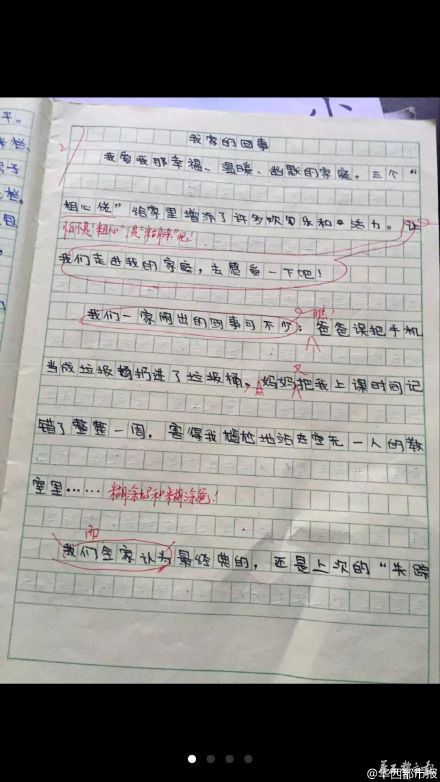 平。
我家的囧事
我有我那幸福、温暖、幽默的家庭。三个“
粗心佬”给家里增添了许多欢声乐和活力。让
怕不是“粗心”是“糊涂”吧!
我们走进我的家庭,去感受一下吧!
我们一家闹出的囧事可不少:爸爸误把手机
瞧!
当成垃圾扔进了垃圾桶,妈妈把我上课时间记
又
错了整整一周,害得我尴尬地站在空无一人的教
室里……
糊涂妈和糊涂爸!
而
我们全家认为最经典的,还是上次的“失踪
华西都市报
@华西都市报